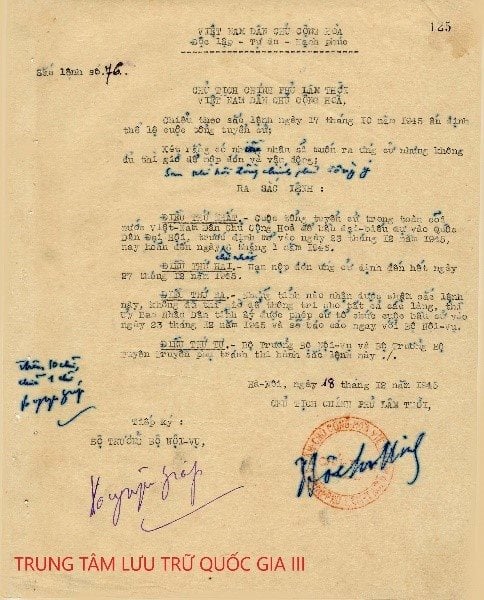 VIỆT NAM DÂN CHỦ CỘNG HÒA
125
Độc lập - Tự do - Hạnh phúc
Sắc lệnh số 76.
CHỦ TỊCH CHÍNH PHỦ LÂM THỜI
VIỆT NAM DÂN CHỦ CỘNG HOÀ,
Chiểu theo sắc lệnh ngày 17 tháng 10 năm 1945 ấn định
thể lệ cuộc tổng tuyển cử;
Xét rằng có nhiều nhân sĩ muốn ra ứng cử nhưng không
đủ thì giờ để nộp đơn và vận động;
Sau khi hội đồng chính phủ đồng ý
RA SẮC LỆNH :
ĐIỀU THỨ NHẤT.- Cuộc tổng tuyển cử trong toàn cõi
nước Việt-Nam Dân Chủ Cộng Hoà để bầu đại-biểu dự vào Quốc
Dân Đại Hội, trước định mở vào ngày 23 tháng 12 năm 1945,
nay hoãn đến ngày tháng 1 năm
chủ nhật
ĐIỀU THỨ HAI.- Hạn nộp đơn ứng cử định đến hết ngày
27 tháng 12 năm 1945.
ĐIỀU THỨ BA.- Những tỉnh nào nhận được chậm sắc lệnh
này, không đủ thì giờ để thông tri cho tất cả các làng, thì
Uỷ Ban Nhân Dân tỉnh ấy được phép cứ tổ chức cuộc bầu cử vào
ngày 23 tháng 12 năm 1945 và sẽ báo cáo ngay với Bộ Nội-Vụ.
ĐIỀU THỨ TƯ.- Bộ Trưởng Bộ Nội-Vụ và Bộ Trưởng Bộ
Tuyên Truyền phụ trách thi hành sắc lệnh này ./.
Hà-Nội, ngày 18 tháng 12 năm 1945
CHỦ TỊCH CHÍNH PHỦ LÂM THỜI,
Tiếp ký:
BỘ TRƯỞNG BỘ NỘI-VỤ,
Võ nguyên giáp
Võ nguyên giáp
Hồ Chí Minh
TRUNG TÂM LƯU TRỮ QUỐC GIA III